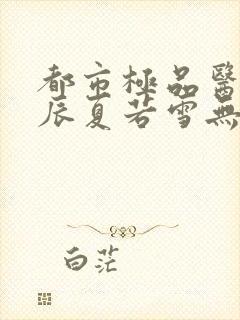 都市極品醫
辰夏若雪無
白茫